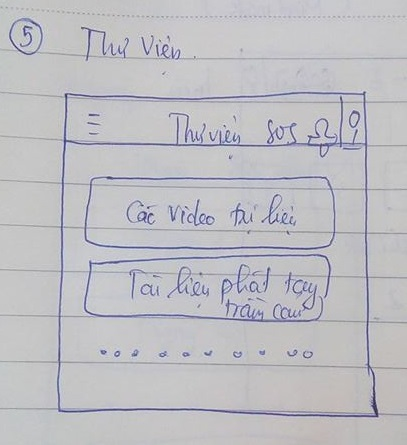 5 Thư Viện.
Thư viện SOS
Các video trị liệu
Tài liệu phát tay
trầm cảm